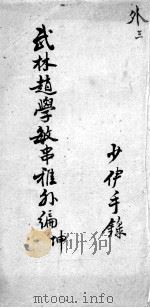 外三
武林趙學敏串雅外編 坤
少伊手錄
mtoou.info
mtoou.info